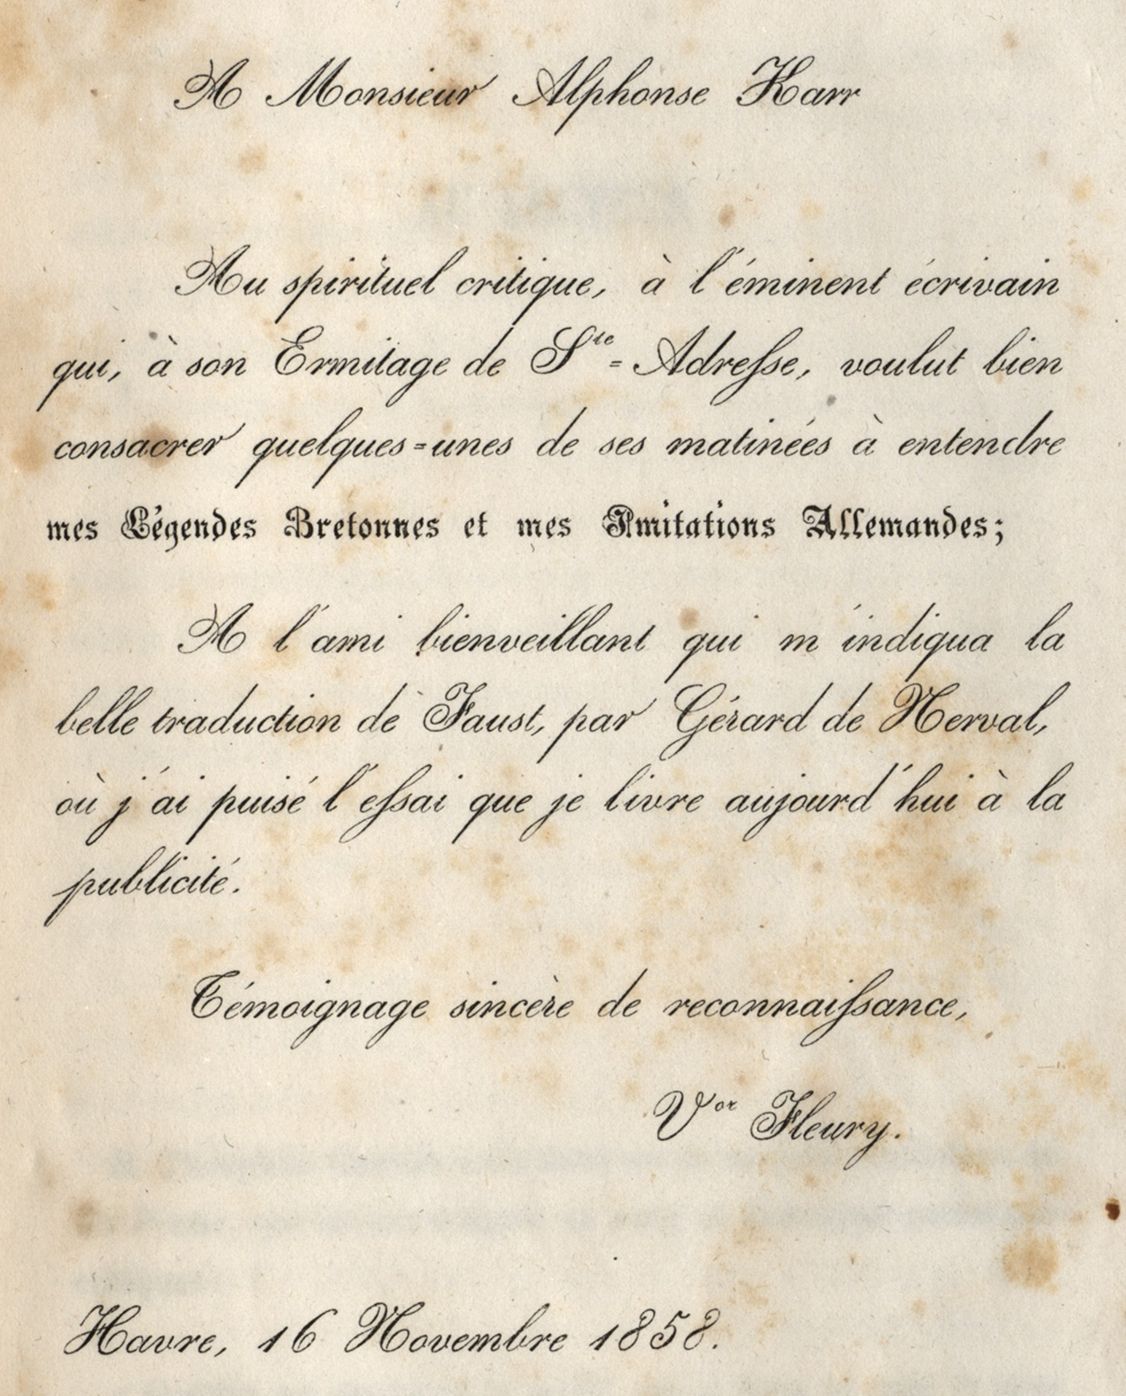 A Monsieur Alphonse Karr
Au spirituel critique, à l'éminent écrivain
qui, à son Ermitage de Ste=Adresse, voulut bien
consacrer quelques=unes de ses matinées à entendre
mes Légendes Bretonnes et mes Imitations Allemandes;
A l'ami bienveillant qui m'indiqua la
belle traduction de Faust, par Gérard de Nerval,
où j'ai puisé l'essai que je livre aujourd'hui à la
publicité.
Témoignage sincère de reconnaissance,
Vor Fleury.
Havre, 16 Novembre 1858.